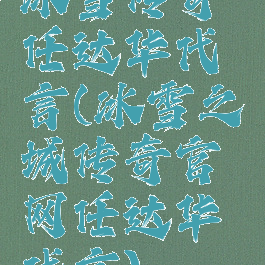 冰雪传奇
任达华代
言(冰雪之
城传奇官
网任达华
代言)